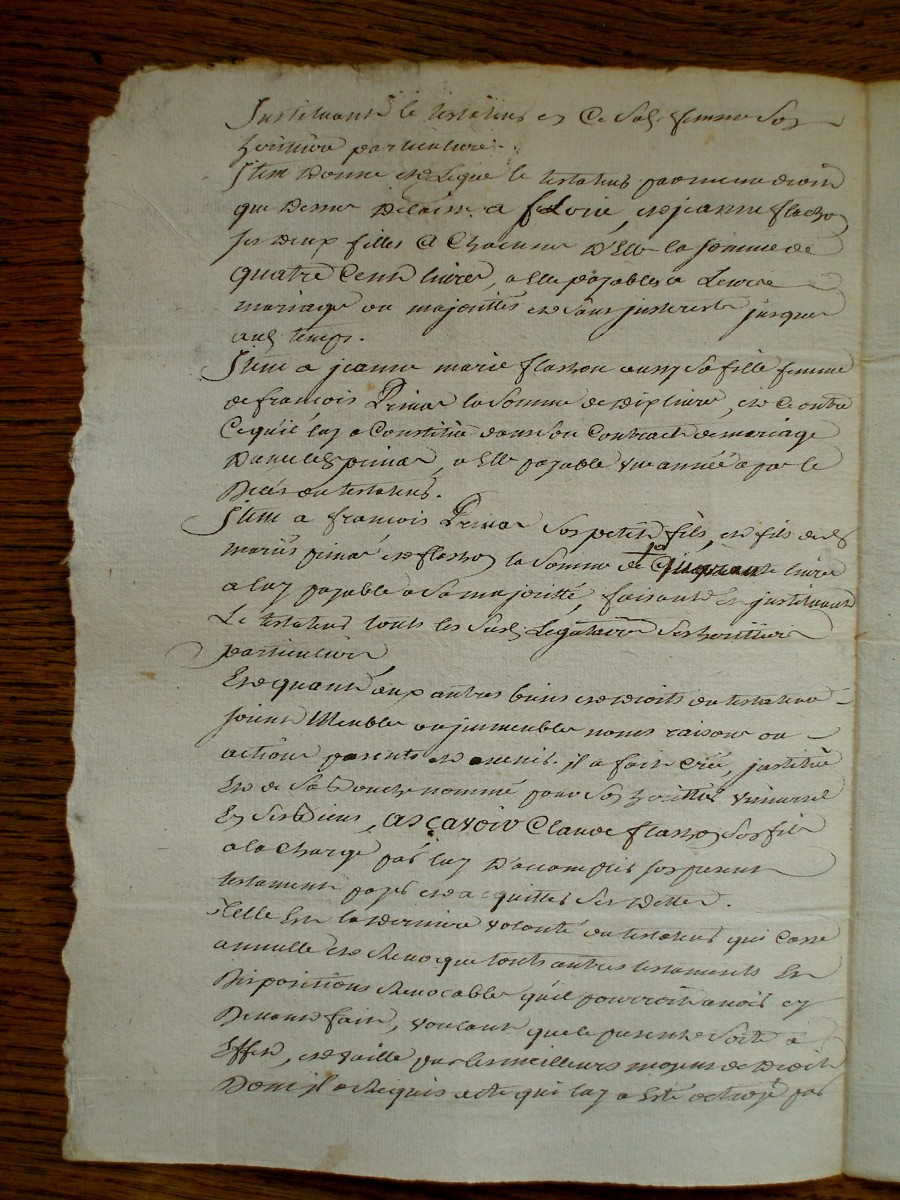 Instituant le testateur en ce sad. femme son
heritiere particuliere.
Item donne et legue le testateur par meme droit
que dessus a et jeanne flachon
ses deux filles a chacune d'elle la somme de
quatre cent livres, a elle payables a leur
mariage ou majorittés et sans interest jusques
aud. temps.
Item a jeanne marie flachon aussy sa fille femme
de françois Primar la somme de dix livres, et ce outre
ce qu'il luy a constitué dans son contract de mariage
avec led. primar, a elle payable une année apres le
deces du testateur.
Item a françois Primar son petit fils, et fils desd.
mariés primar et flachon la somme de livres
a luy payable a sa majoritté, faisant et instituant
Le testateur touts les susd. Legataires ses heritiers
particuliers
Et quant aux autres biens et droits du testateur
soient Meubles ou immeubles noms raisons ou
actions presents et avenir. il a fait créé, institué
Et de sa bouche nommé pour son heritier universel
En ses biens, asçavoir Claude flachon son fils
a la charge par luy d'accomplir son present
testament payer et acquitter ses dettes.
Telle Est la derniere volonté du testateur qui casse
annulle et revoque touts autres testaments Et
Dispositions revocables qu'il pourroit avoir cy
Devant fait, voulant que le present sorte a
Effet, et vaille par les meilleurs moyens de Droit
Dont il a requis acte qui luy a esté octroyé par